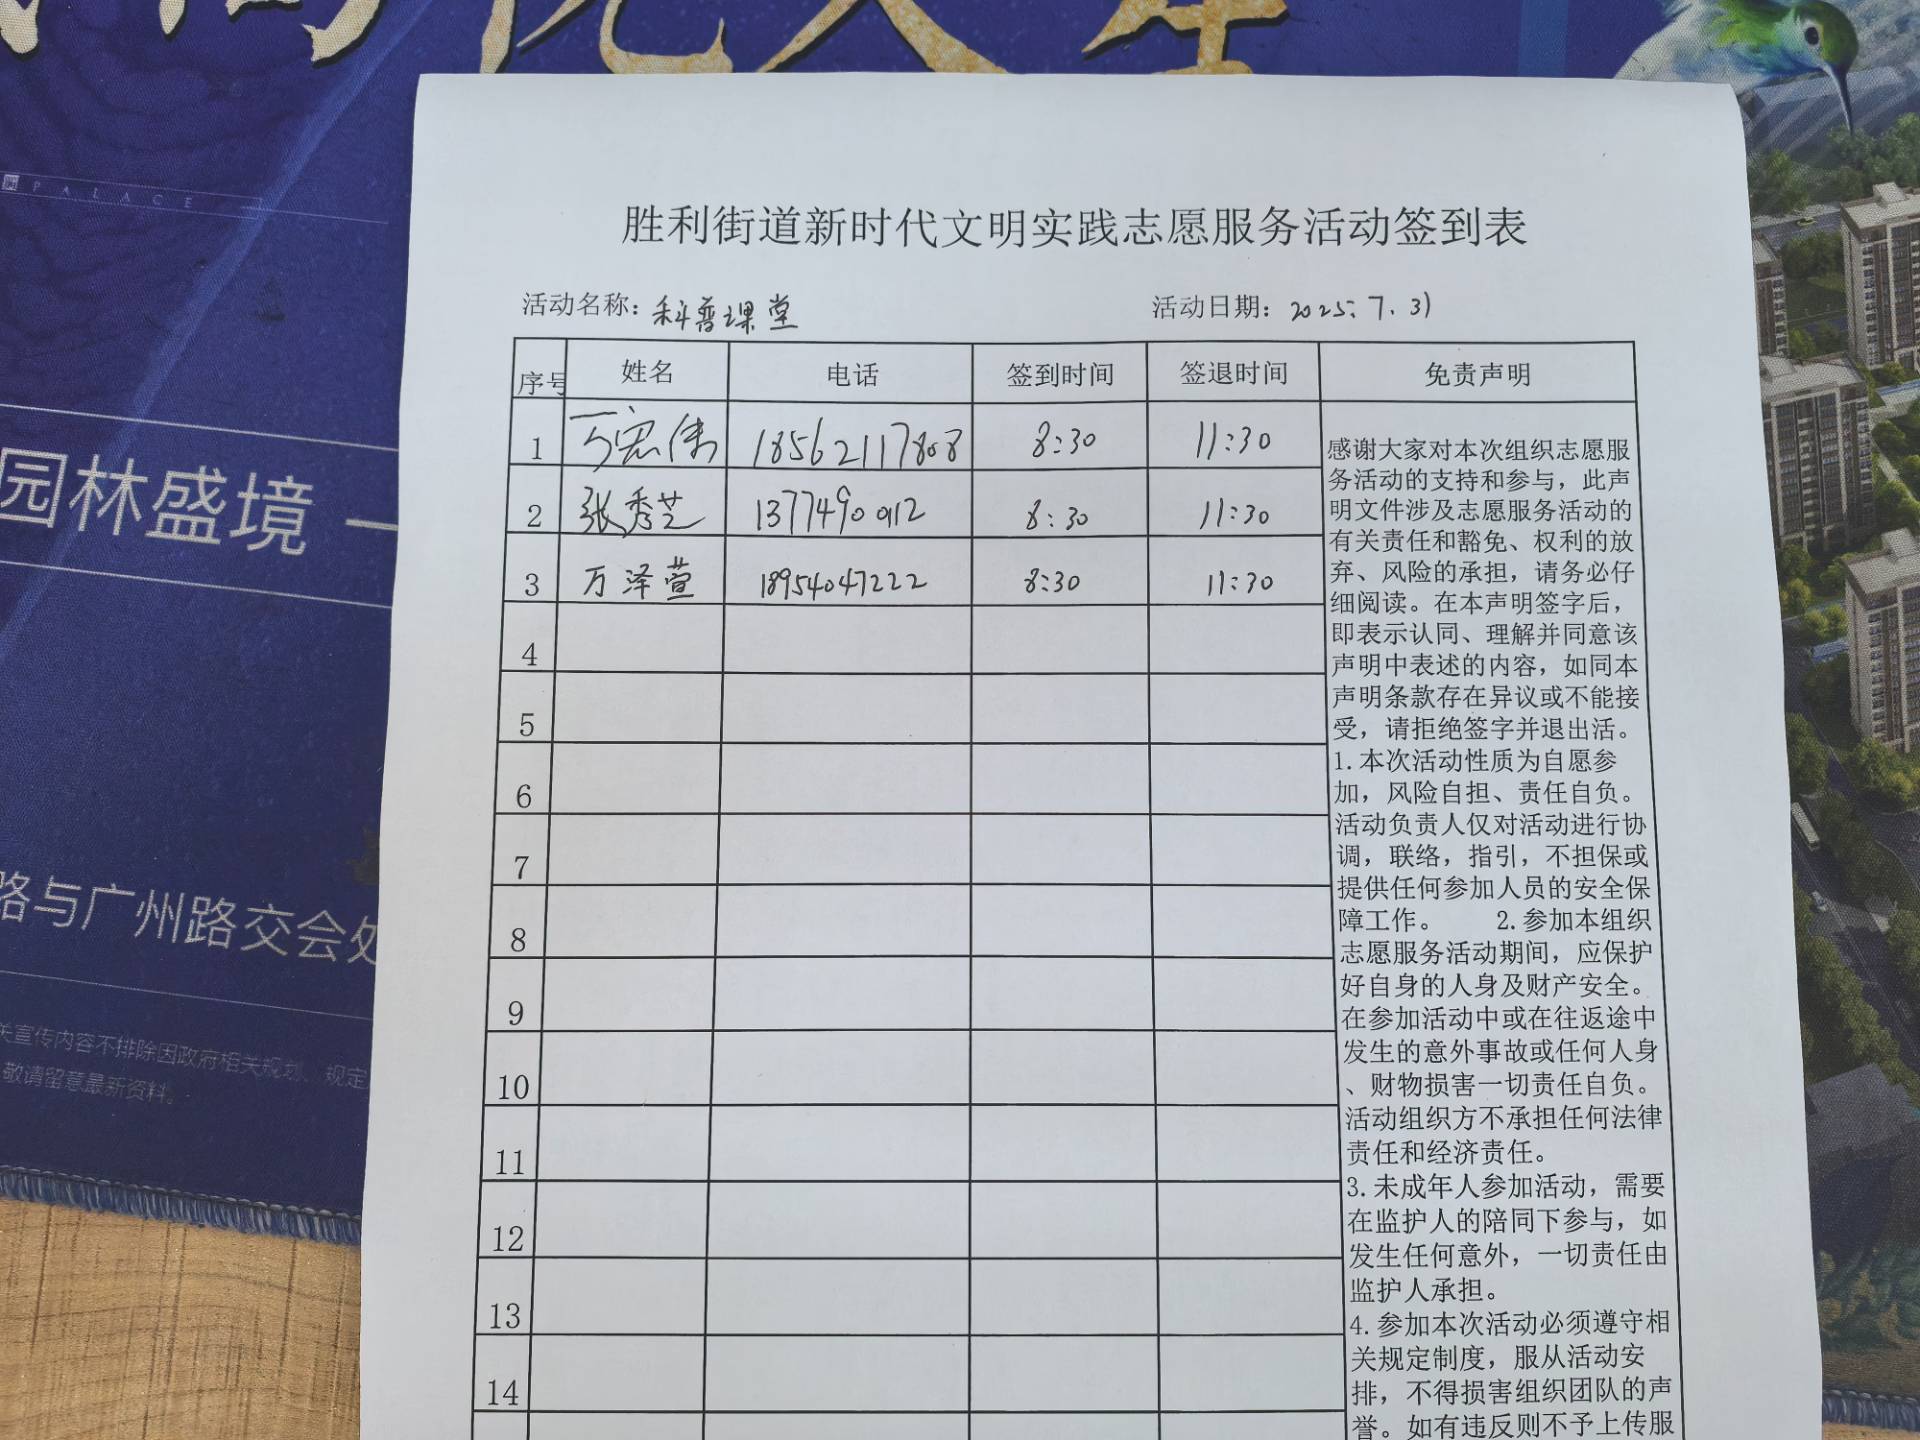 PALACE
园林盛境 一
路与广州路交会处
关宣传内容不排除因政府相关规划、规定
敬请留意最新资料。
胜利街道新时代文明实践志愿服务活动签到表
活动名称：科普课堂 活动日期：2025.7.31
序号 姓名 电话 签到时间 签退时间 免责声明
1 万宏伟 18562117808 8:30 11:30
2 张秀芝 1377490912 8:30 11:30
3 万泽萱 18954047222 8:30 11:30
4
5
6
7
8
9
10
11
12
13
14
感谢大家对本次组织志愿服
务活动的支持和参与，此声
明文件涉及志愿服务活动的
有关责任和豁免、权利的放
弃、风险的承担，请务必仔
细阅读。在本声明签字后，
即表示认同、理解并同意该
声明中表述的内容，如同本
声明条款存在异议或不能接
受，请拒绝签字并退出活。
1.本次活动性质为自愿参
加，风险自担、责任自负。
活动负责人仅对活动进行协
调，联络，指引，不担保或
提供任何参加人员的安全保
障工作。 2.参加本组织
志愿服务活动期间，应保护
好自身的人身及财产安全。
在参加活动中或在往返途中
发生的意外事故或任何人身
、财物损害一切责任自负。
活动组织方不承担任何法律
责任和经济责任。
3.未成年人参加活动，需要
在监护人的陪同下参与，如
发生任何意外，一切责任由
监护人承担。
4.参加本次活动必须遵守相
关规定制度，服从活动安
排，不得损害组织团队的声
誉。如有违反则不予上传服